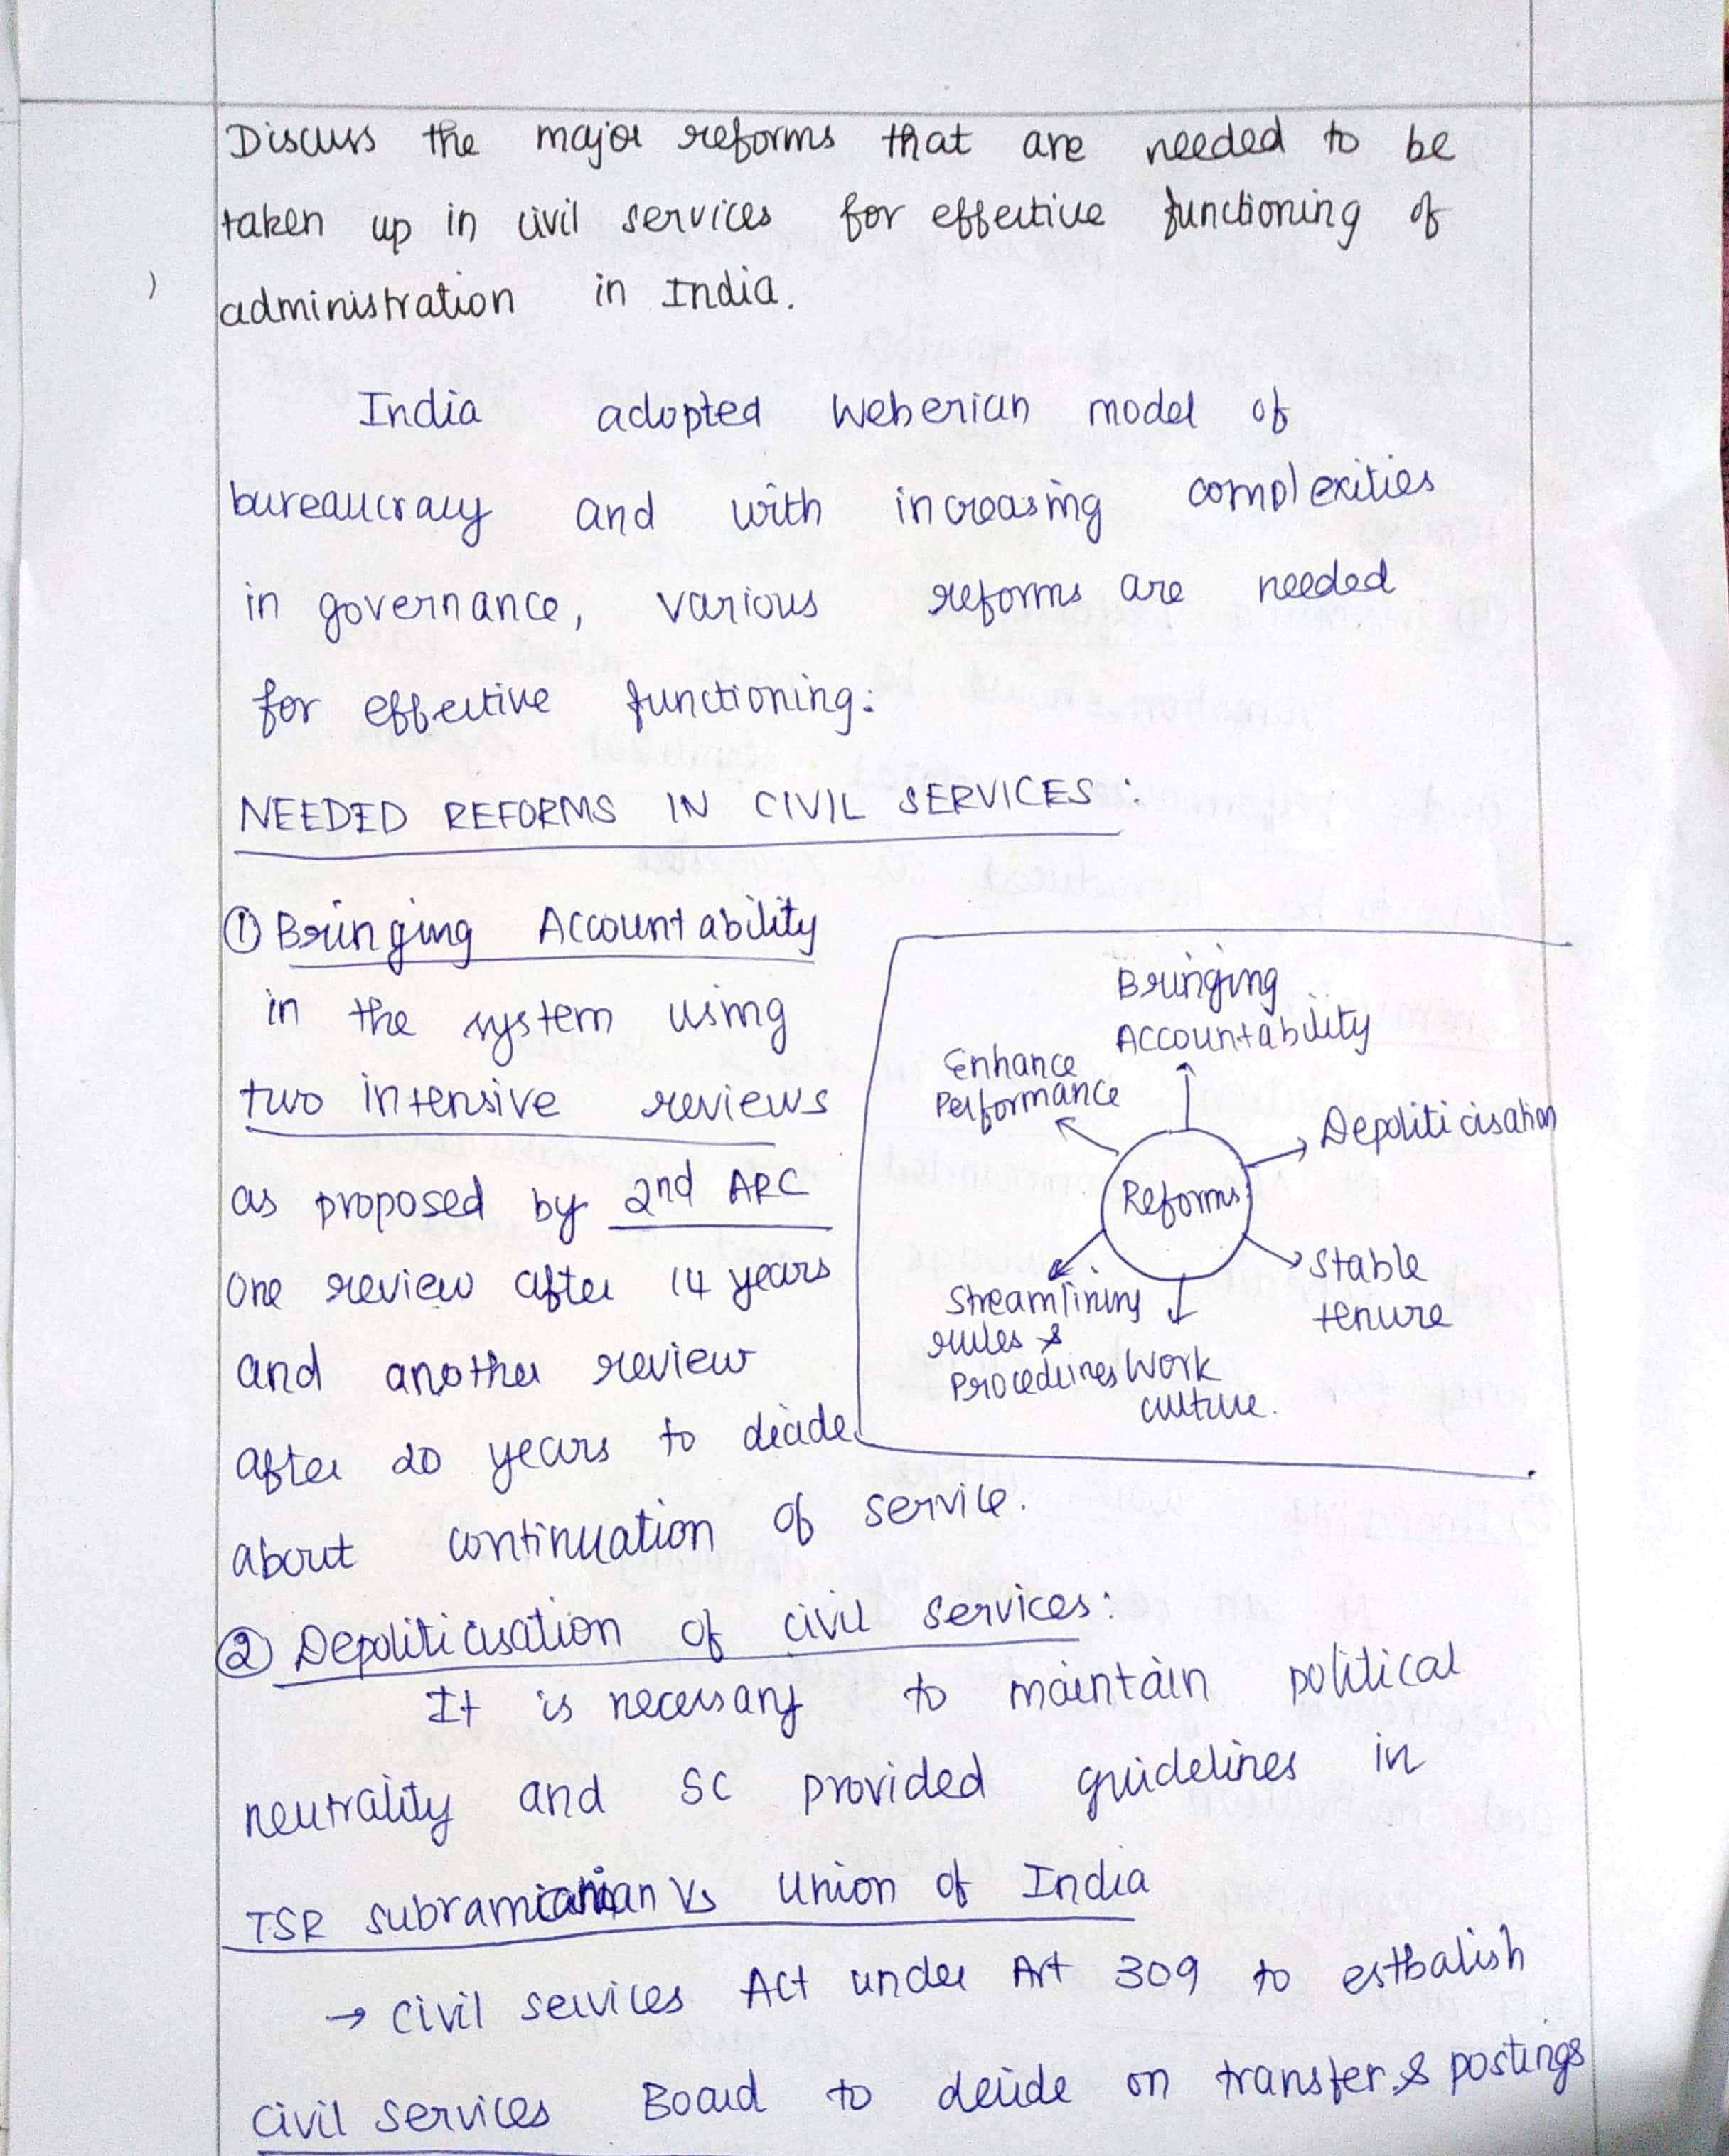 Discuss the major reforms that are needed to be
taken up in civil services for effective functioning of
administration in India.
India adopted Weberian model of
bureaucracy and with increasing complexities
in governance, various reforms are needed
for effective functioning:
NEEDED REFORMS IN CIVIL SERVICES :
① Bringing Accountability
in the system using
two intensive reviews
as proposed by 2nd ARC
one review after 14 years
and another review
after 20 years to decide
about continuation of service.
Bringing
Accountability
Enhance
Performance
Depoliticisation
Reforms
Stable
tenure
Streamlining
rules &
Procedures
Work
culture.
② Depoliticisation of civil services:
It is necessary to maintain political
neutrality and SC provided guidelines in
TSR subramanian Vs Union of India
→ civil services Act under Art 309 to estbalish
civil services Board to decide on transfer & postings